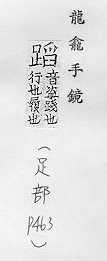 龍龕手鏡
蹈
音盗踐也
行也履也
(足部 P463)